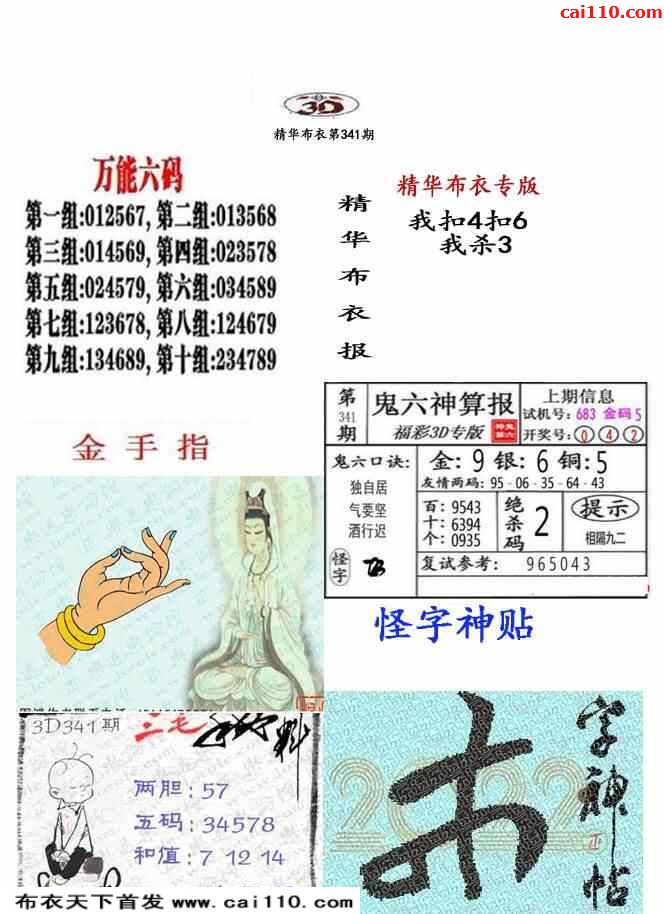 cai110.com
3D
精华布衣第341期
万能六码
第一组:012567, 第二组:013568
第三组:014569, 第四组:023578
第五组:024579, 第六组:034589
第七组:123678, 第八组:124679
第九组:134689, 第十组:234789
精华布衣报
精华布衣专版
我扣4扣6
我杀3
金手指
第341期
鬼六神算报
福彩3D专版
上期信息
试机号: 683 金码 5
开奖号: 0 4 2
鬼六口诀:
独自居
气要坚
酒行迟
怪字
金: 9 银: 6 铜: 5
友情两码: 95-06-35-64-43
百: 9543
十: 6394
个: 0935
绝杀码 2
提示
相隔九二
复试参考: 965043
怪字神贴
3D341期
三毛
料
两胆: 57
五码: 34578
和值: 7 12 14
2022
字神帖
布衣天下首发 www.cai110.com